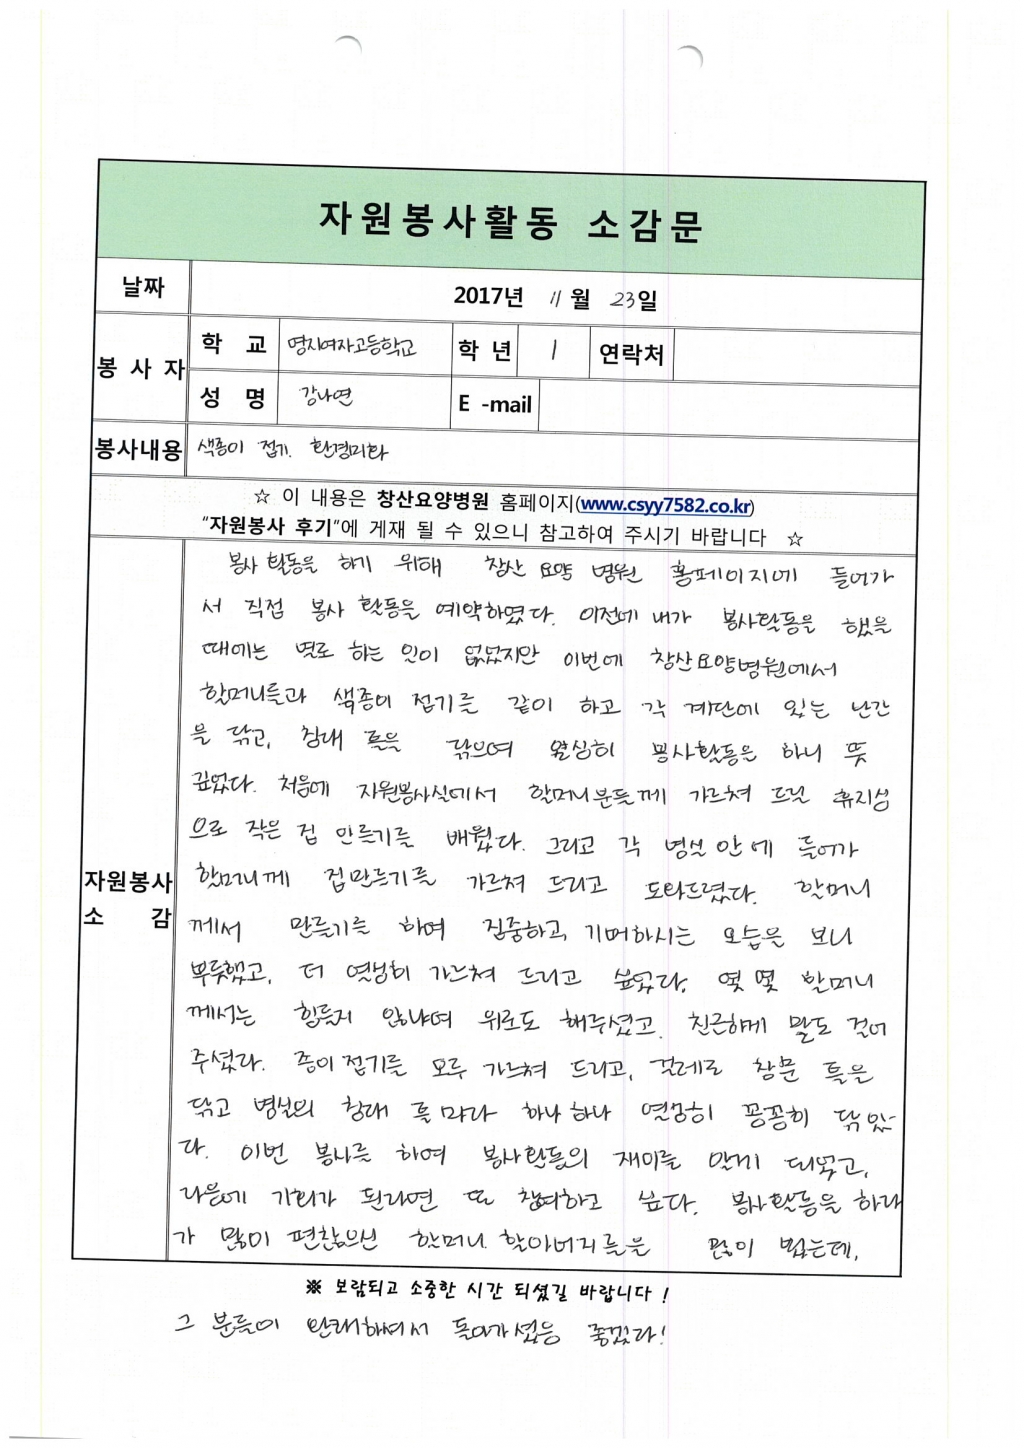 자원봉사활동 소감문
날짜 2017년 11월 23일
봉사자 학교 명지여자고등학교 학년 1 연락처
성명 강나연 E-mail
봉사내용 색종이 접기, 환경미화
☆ 이 내용은 창산요양병원 홈페이지(www.csyy7582.co.kr)
"자원봉사 후기"에 게재 될 수 있으니 참고하여 주시기 바랍니다 ☆
자원봉사 소감
봉사 활동을 하기 위해 창산 요양 병원 홈페이지에 들어가
서 직접 봉사 활동을 예약하였다. 이전에 내가 봉사활동을 했을
때에는 별로 하는 일이 없었지만 이번에 창산요양병원에서
할머니들과 색종이 접기를 같이 하고 각 계단에 있는 난간
을 닦고, 창대 틀을 닦으며 열심히 봉사활동을 하니 뜻
깊었다. 처음에 자원봉사실에서 할머니분들께 가르쳐 드릴
으로 작은 집 만들기를 배웠다. 그리고 각 병실 안에 들어가
할머니께 집만들기를 가르쳐 드리고 도와드렸다. 할머니
께서 만들기를 하며 집중하고, 기뻐하시는 모습을 보니
뿌듯했고, 더 열심히 가르쳐 드리고 싶었다. 몇 몇 할머니
께서는 힘들지 않냐며 위로도 해주셨고, 친근하게 말도 걸어
주셨다. 종이접기를 모두 가르쳐 드리고, 걸레로 창문 틀을
닦고 병실의 창대 틀마다 하나하나 열심히 꼼꼼히 닦았
다. 이번 봉사를 하며 봉사활동의 재미를 알게 되었고,
다음에 기회가 된다면 또 참여하고 싶다. 봉사활동을 하다
가 많이 편찮으신 할머니, 할아버지들을 많이 뵀는데,
※ 보람되고 소중한 시간 되셨길 바랍니다 !
그 분들이 완쾌하셔서 돌아가셨음 좋겠다!